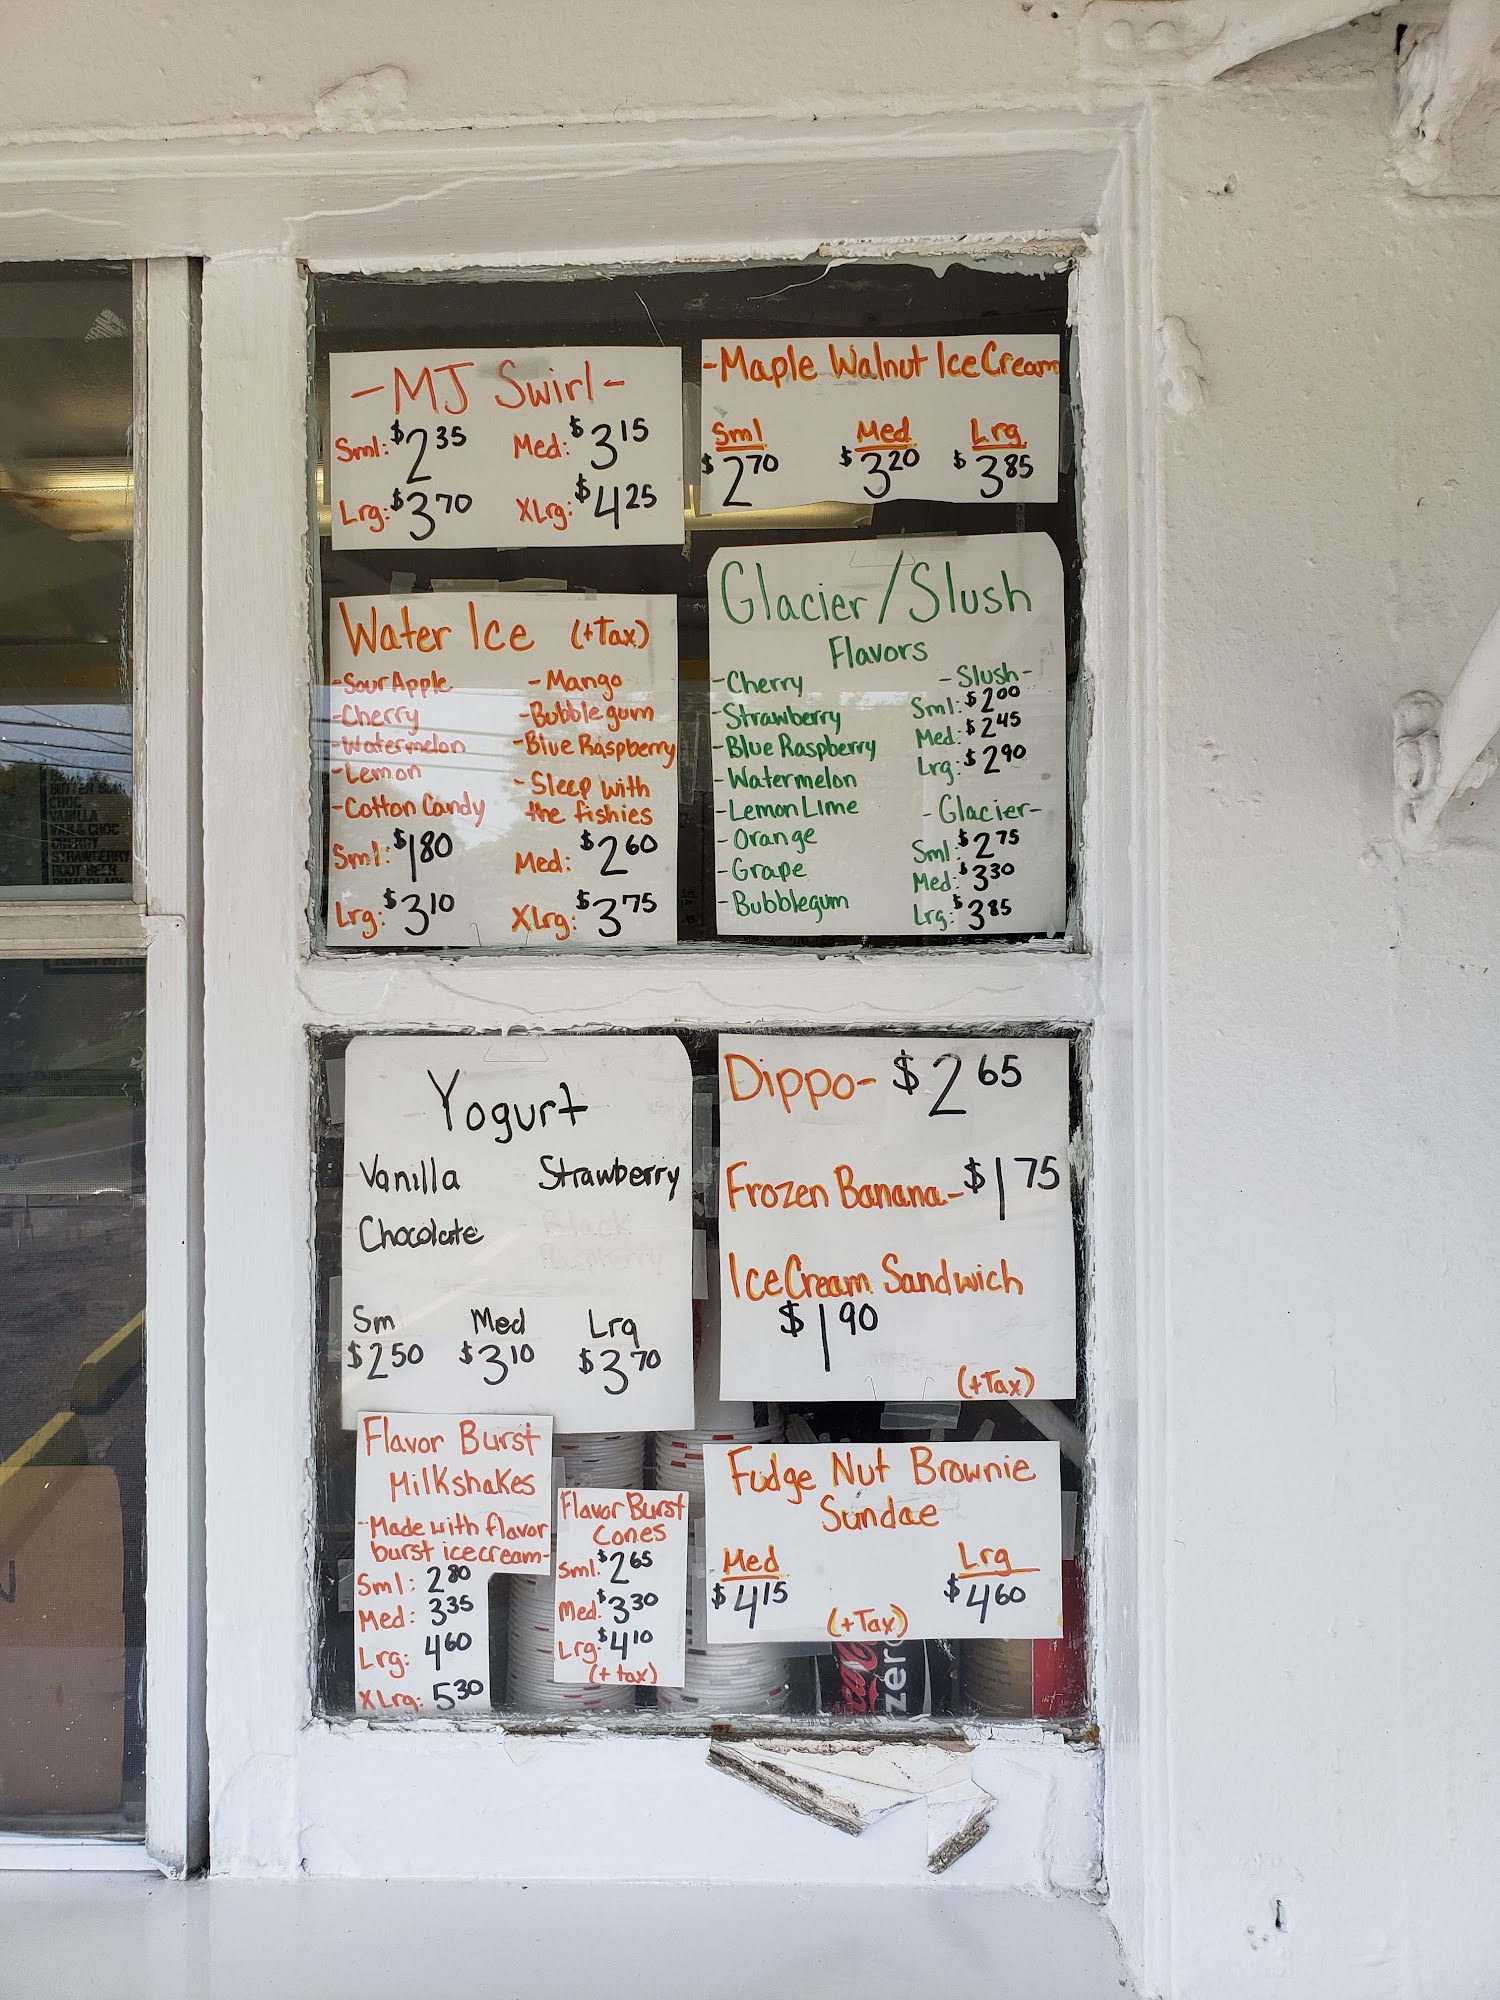 -MJ Swirl-
Sml: $2 35 Med: $3 15
Lrg: $3 70 XLrg: $4 25
-Maple Walnut Ice Cream
Sml Med Lrg
$2 70 $3 20 $3 85
Water Ice (+Tax)
-Sour Apple -Mango
-Cherry -Bubblegum
-Watermelon -Blue Raspberry
-Lemon -Sleep with
-Cotton Candy the fishies
Sml: $1 80 Med: $2 60
Lrg: $3 10 XLrg: $3 75
Glacier/Slush
Flavors
-Cherry -Slush-
-Strawberry Sml: $2 00
-Blue Raspberry Med: $2 45
-Watermelon Lrg: $2 90
-Lemon Lime -Glacier-
-Orange Sml: $2 75
-Grape Med: $3 30
-Bubblegum Lrg: $3 85
BUTTER
CHOC
VANILLA
VAN & CHOC
CHERRY
STRAWBERRY
ROOT BEER
Yogurt
-Vanilla -Strawberry
Chocolate -Black
Raspberry
Sm Med Lrg
$2 50 $3 10 $3 70
Dippo- $2 65
Frozen Banana- $1 75
Ice Cream Sandwich
$1 90
(+Tax)
Flavor Burst
Milkshakes
-Made with flavor
burst icecream-
Sml: 2 80
Med: 3 35
Lrg: 4 60
XLrg: 5 30
Flavor Burst
Cones
Sml: $2 65
Med: $3 30
Lrg: $4 10
(+ tax)
Fudge Nut Brownie
Sundae
Med Lrg
$4 15 $4 60
(+Tax)
zero